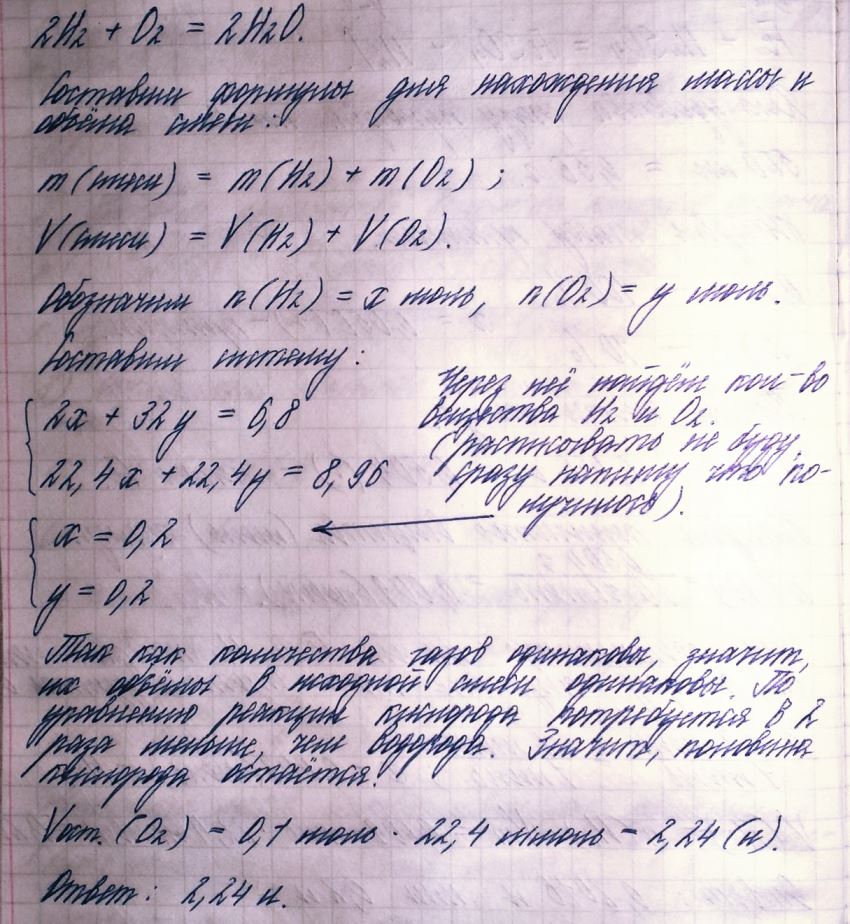 2H₂ + O₂ = 2H₂O.
Составим формулы для нахождения массы и
объёма смеси:
m(смеси) = m(H₂) + m(O₂) ;
V(смеси) = V(H₂) + V(O₂).
Обозначим n(H₂) = x моль, n(O₂) = y моль.
Составим систему:
2x + 32y = 6,8
22,4x + 22,4y = 8,96
Через неё найдём кол-во
вещества H₂ и O₂.
(расписывать не буду,
сразу напишу что по-
лучилось).
x = 0,2
y = 0,2
Так как количества газов одинаковы, значит,
их объёмы в исходной смеси одинаковы. По
уравнению реакции кислорода потребуется в 2
раза меньше, чем водорода. Значит, половина
кислорода остаётся.
Vост. (O₂) = 0,1 моль · 22,4 л/моль = 2,24 (л).
Ответ: 2,24 л.